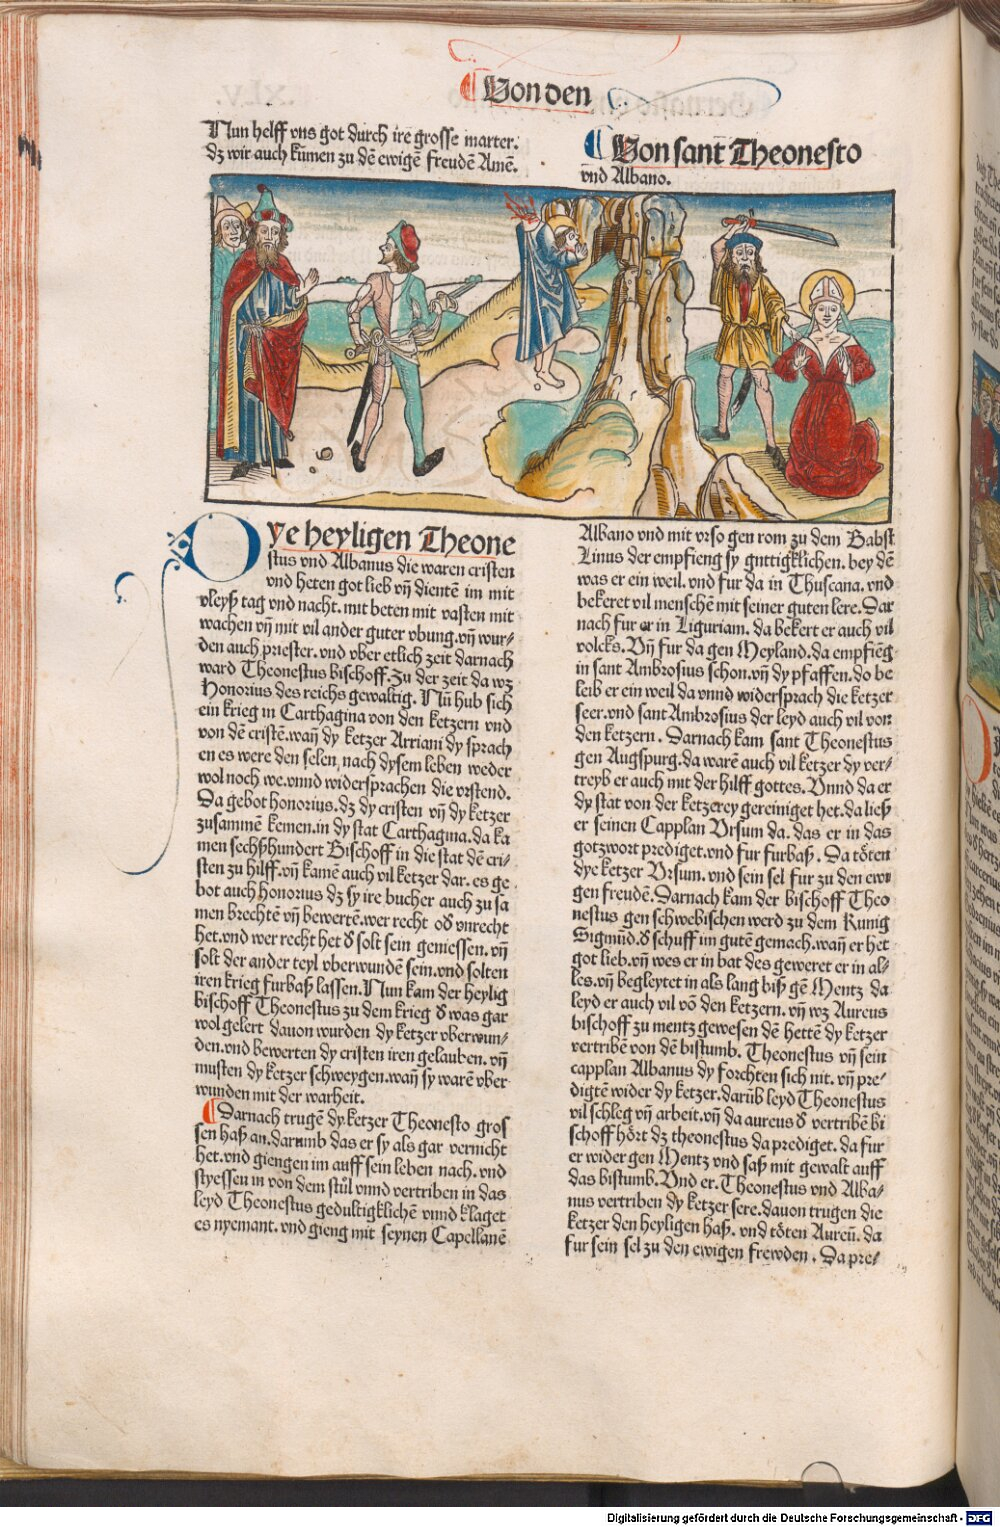 Von den
Nun helff vns got durch ire grosse marter.
dz wir auch kūmen zu dē ewigē freudē Amē.
Von sant Theonesto
vnd Albano.
DYe heyligen Theone
stus vnd Albanus die waren cristen
vnd heten got lieb vn̄ dientē im mit
vleyß tag vnd nacht. mit beten mit vasten mit
wachen vn̄ mit vil ander guter vbung. vn̄ wur-
den auch priester. vnd vber etlich zeit darnach
ward Theonestus bischoff. Zu der zeit da wz
Honorius des reichs gewaltig. Nū hub sich
ein krieg in Carthagina von den ketzern vnd
von dē cristē. wan̄ dy ketzer Arriani dy sprach
en es were den selen nach dysem leben weder
wol noch we. vnnd widersprachen die vrstend.
Da gebot honorius. dz dy cristen vn̄ dy ketzer
zusammē kemen. in dy stat Carthagina. da ka
men sechßhundert Bischoff in die stat dē cri-
sten zu hilff. vn̄ kamē auch vil ketzer dar. es ge
bot auch honorius dz sy ire bucher auch zu sa
men brechtē vn̄ bewertē. wer recht od vnrecht
het. vnd wer recht het d solt sein geniessen. vn̄
solt der ander teyl vberwundē sein. vnd solten
iren krieg furbaß lassen. Nun kam der heylig
bischoff Theonestus zu dem krieg d was gar
wol gelert dauon wurden dy ketzer vberwun-
den. vnd bewerten dy cristen iren gelauben. vn̄
musten dy ketzer schweygen. wan̄ sy warē vber
wunden mit der warheit.
Darnach trugē dy ketzer Theonesto gros
sen haß an. darumb das er sy als gar vernicht
het. vnd giengen im auff sein leben nach. vnd
styessen in von dem stůl vnnd vertriben in das
leyd Theonestus gedultigklichē vnnd klaget
es nyemant. vnd gieng mit seynen Capellanē
Albano vnd mit vrso gen rom zu dem Babst
Linus der empfieng sy gnttigklichen. bey dē
was er ein weil. vnd fur da in Thuscana. vnd
bekeret vil menschē mit seiner guten lere. Dar
nach fur er in Liguriam. da bekert er auch vil
volcks. Vn̄ fur da gen Meyland. da empfieng
in sant Ambrosius schon. vn̄ dy pfaffen. do be
leib er ein weil da vnnd widersprach die ketzer
seer. vnd sant Ambrosius der leyd auch vil von
den ketzern. Darnach kam sant Theonestus
gen Augspurg. da warē auch vil ketzer dy ver-
treyb er auch mit der hilff gottes. Vnnd da er
dy stat von der ketzerey gereiniget het. da ließ
er seinen Capplan Vrsum da. das er in das
gotzwort prediget. vnd fur furbaß. Da töten
dye ketzer Vrsum. vnd sein sel fur zu den ewi
gen freudē. Darnach kam der bischoff Theo
nestus gen schwebischen werd zu dem Kunig
Sigmūd. d schuff im gutē gemach. wan̄ er het
got lieb. vn̄ wes er in bat des geweret er in al-
les. vn̄ begleytet in als lang biß gē Mentz da
leyd er auch vil vō den ketzern. vn̄ wz Aureus
bischoff zu mentz gewesen dē hettē dy ketzer
vertribē von dē bistumb. Theonestus vn̄ sein
capplan Albanus dy forchten sich nit. vn̄ pre-
digtē wider dy ketzer. darūb leyd Theonestus
vil schleg vn̄ arbeit. vn̄ da aureus d vertribē bi
schoff hört dz theonestus da prediget. da fur
er wider gen Mentz vnd saß mit gewalt auff
das bistumb. Vnd er. Theonestus vnd Alba-
nus vertriben dy ketzer sere. dauon trugen die
ketzer den heyligen haß. vnd töten Aureū. da
fur sein sel zu den ewigen frewden. Da pre-
Digitalisierung gefördert durch die Deutsche Forschungsgemeinschaft - DFG